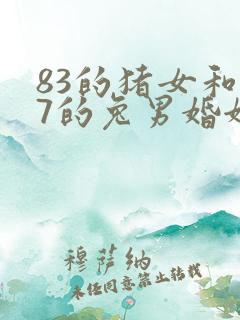 83的猪女和
7的兔男婚姻
穆萨纳
未经同意禁止转载